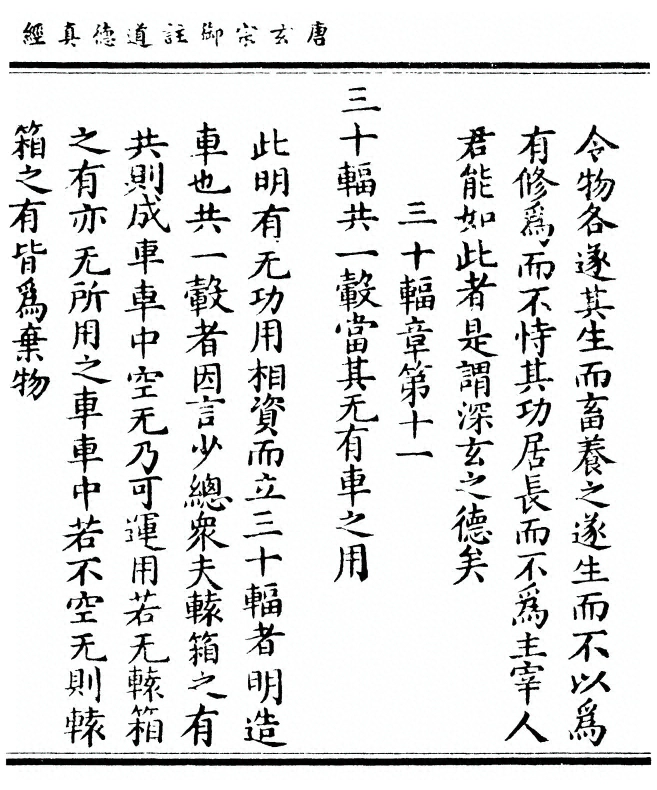 唐玄宗御註道德真經
令物各遂其生而畜養之遂生而不以為
有修為而不恃其功居長而不為主宰人
君能如此者是謂深玄之德矣
三十輻章第十一
三十輻共一轂當其无有車之用
此明有无功用相資而立三十輻者明造
車也共一轂者因言少總衆夫轅箱之有
共則成車車中空无乃可運用若无轅箱
之有亦无所用之車車中若不空无則轅
箱之有皆為棄物